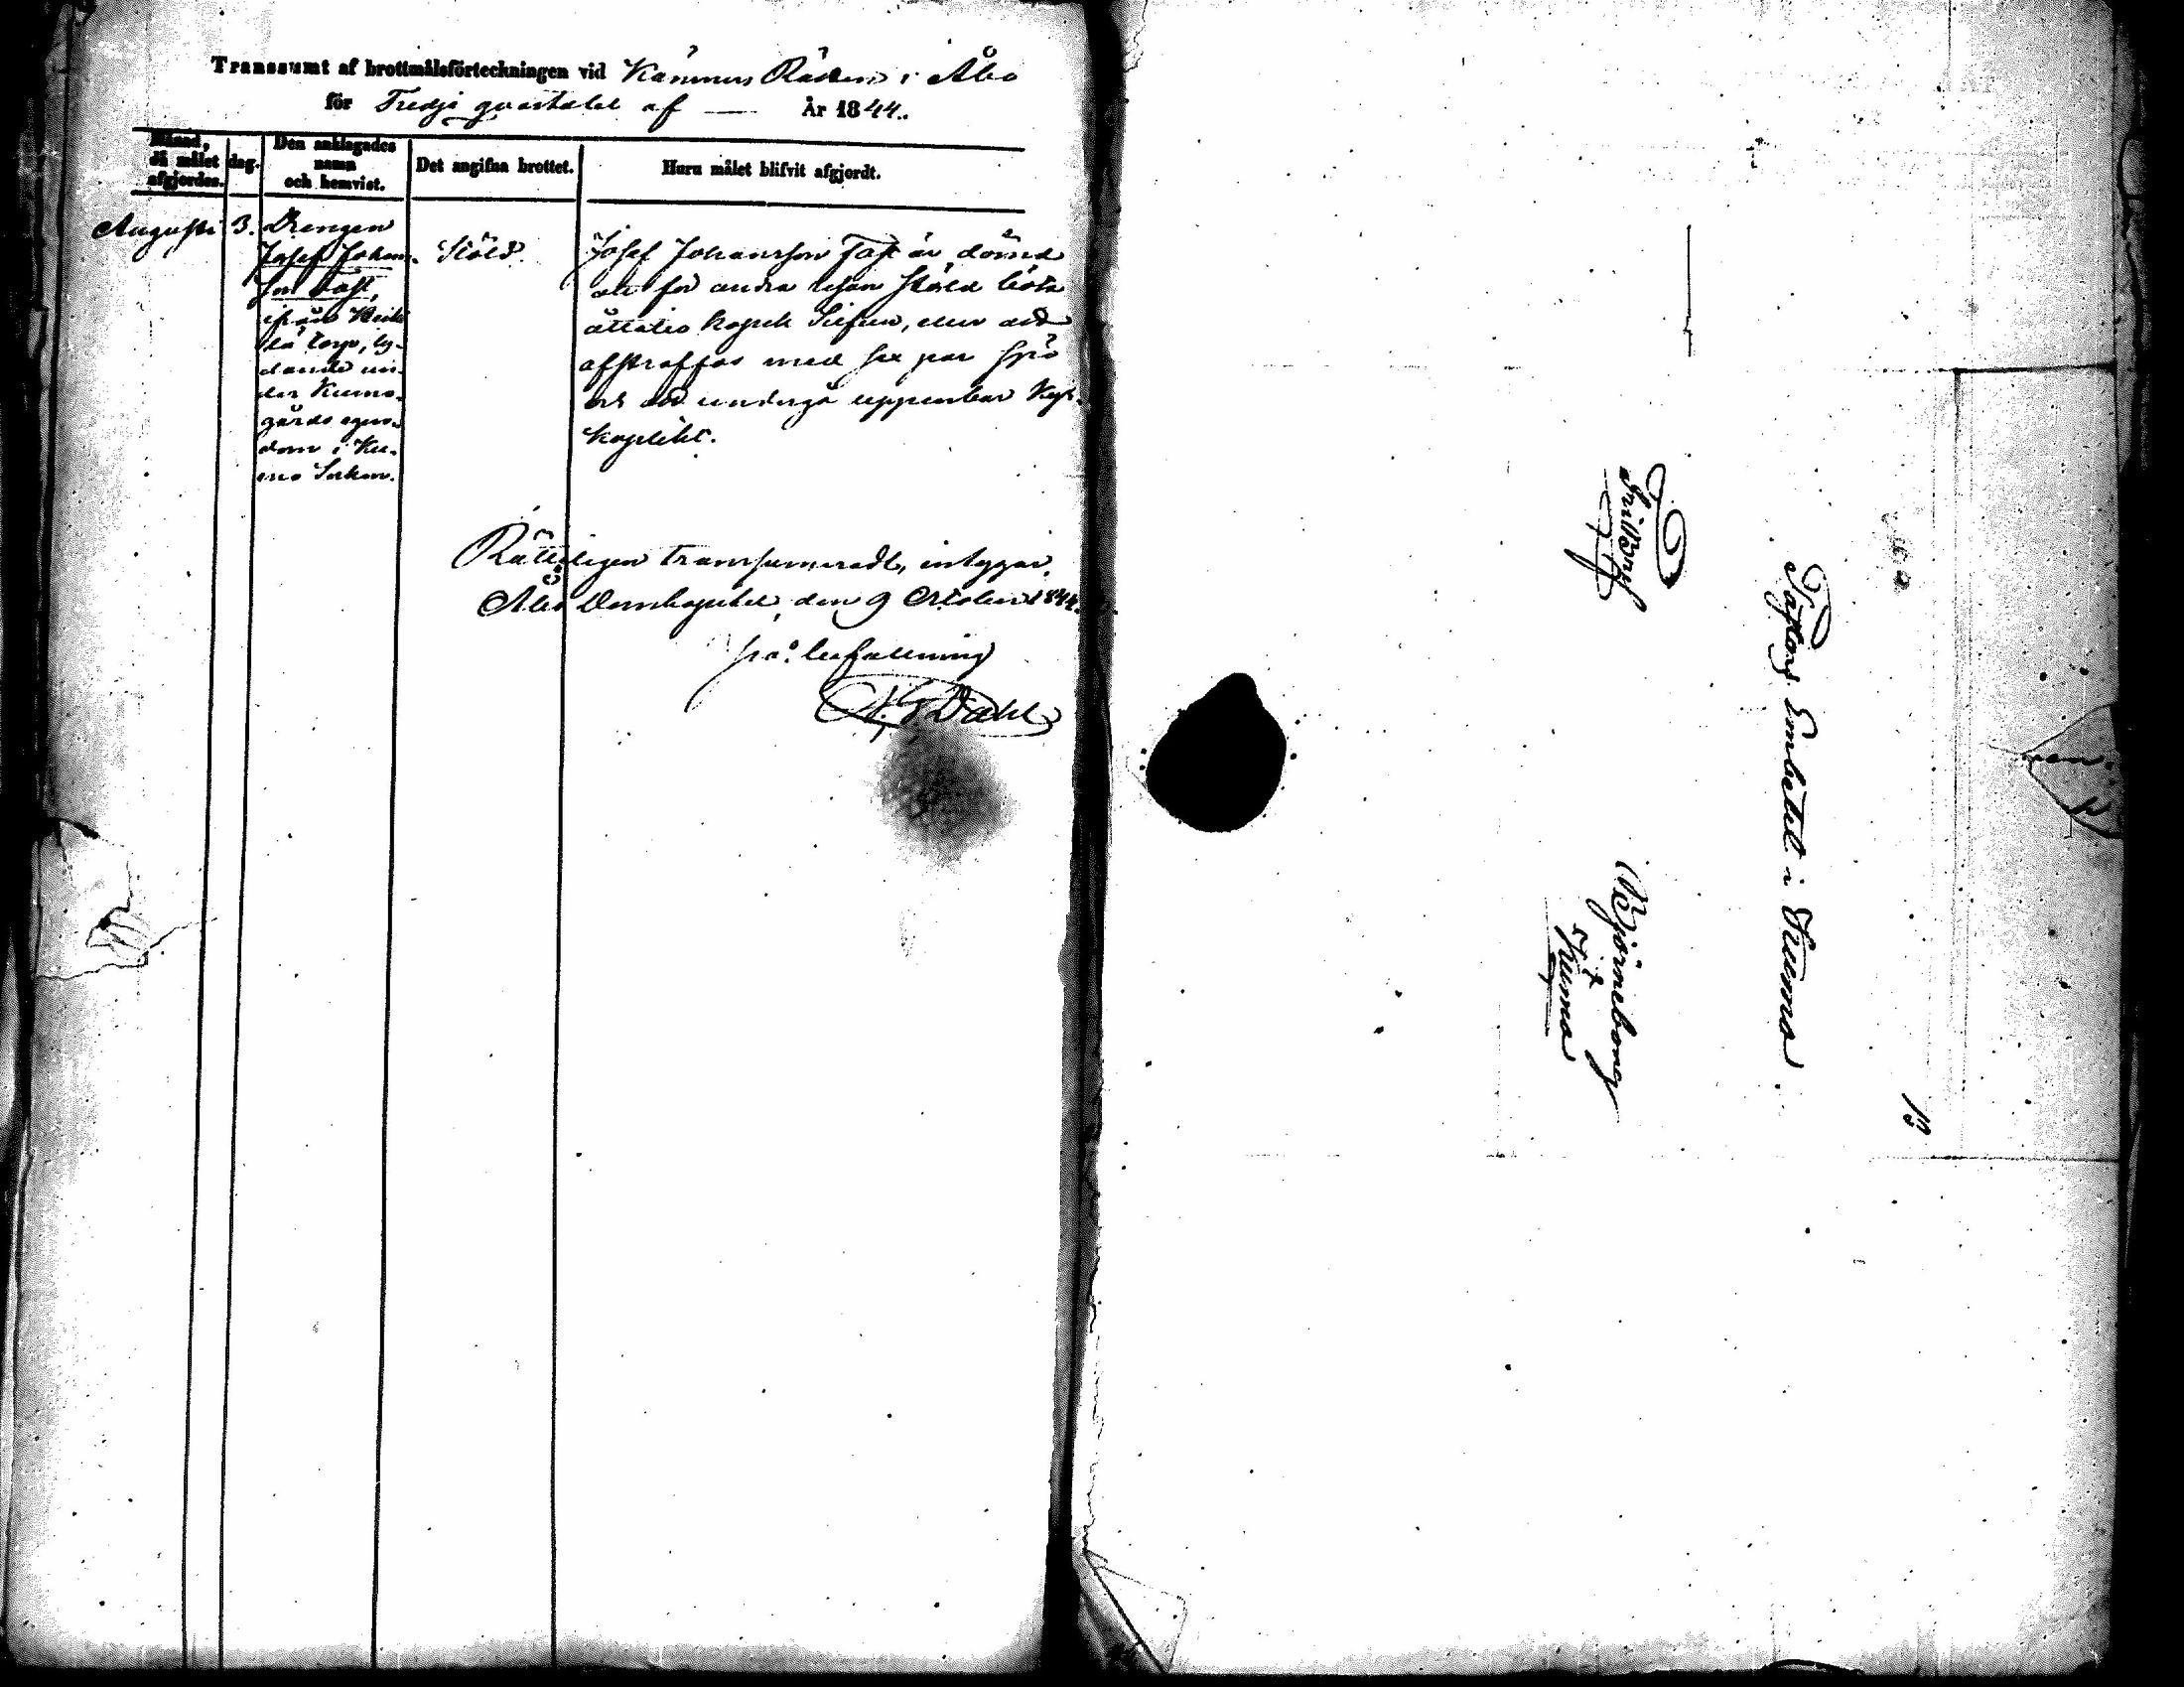 Transsumt af brottmålsförteckningen vid Kämners Rätten i Åbo
för Tredje quartalet af — År 1844.
Månad, då målet afgjordes.
dag.
Den anklagades namn och hemvist.
Det angifna brottet.
Huru målet blifvit afgjordt.
Augusti
3.
Drengen
Josef Johans-
son Tast,
ifrån
lä torp, ly-
dande un-
der Kumo-
gårds egen-
dom i Ku-
mo Sokn.
Stöld.
Josef Johansson Tast är dömd
att för andra resan stöld böta
åttatio kopek Silfver, eller att
afstraffas med sex par spö
och att undergå uppenbar Kyr-
koplikt.
Rätteligen transsumeradt, intygar,
Åbo Domkapitel, den 9 October 1844.
på befallning
Dahl
Pastors Embetet i Kumo
Björneborg
Kumo
13